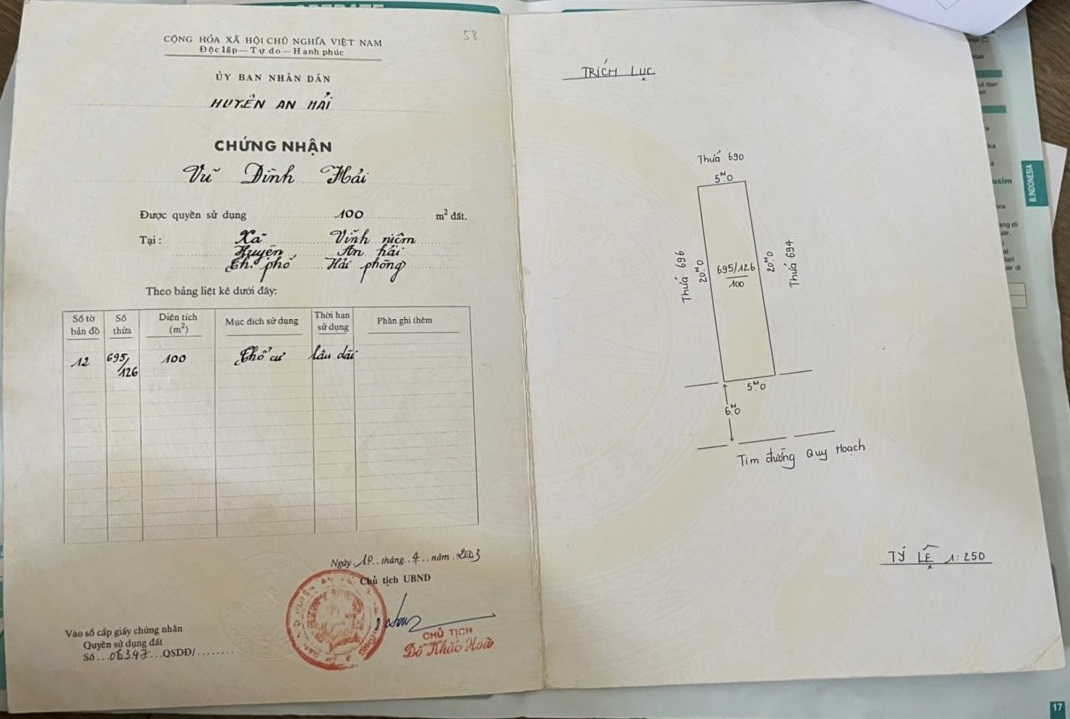 CỘNG HÒA XÃ HỘI CHỦ NGHĨA VIỆT NAM
Độc lập - Tự do - Hạnh phúc
58
ỦY BAN NHÂN DÂN
HUYỆN AN HẢI
CHỨNG NHẬN
Vũ Đình Hải
Được quyền sử dụng 100 m² đất.
Tại: Xã Vĩnh niệm
Huyện An hải
Th. phố Hải phòng
Theo bảng liệt kê dưới đây:
Số tờ bản đồ Số thửa Diện tích (m²) Mục đích sử dụng Thời hạn sử dụng Phần ghi thêm
12 695/126 100 Thổ cư lâu dài
Ngày 10 tháng 4 năm 2003
Chủ tịch UBND
CHỦ TỊCH
Đỗ Khắc Hoà
Vào sổ cấp giấy chứng nhận
Quyền sử dụng đất
Số ... 06347 ... QSDĐ/ ........
TRÍCH LỤC
Thửa 690
5ᴹ0
Thửa 696
20ᴹ0
695/126
100
20ᴹ0
Thửa 694
5ᴹ0
6ᴹ0
Tim đường Quy Hoạch
TỶ LỆ 1:250
B.INDONESIA
17